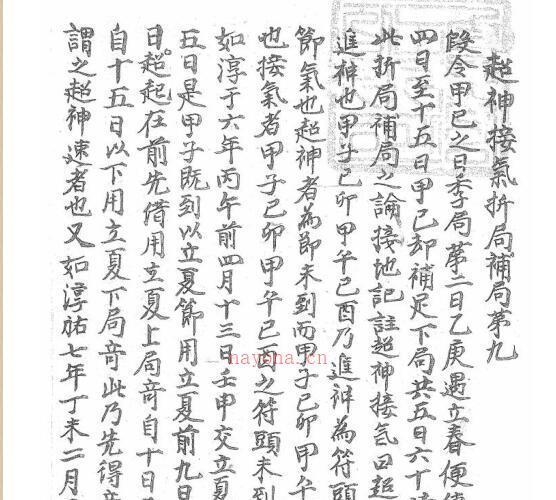 超神接氣折局補局第九
叚令甲巳之日季局第二日乙庚遇立春便
四日至十五日甲巳却補足下局共五日六十
此折局補局之論接地記註超神接氣曰超
進神也甲子巳卯甲午巳酉乃進神為符頭
節氣也超神者為節未到而甲子巳卯甲午
也接氣者甲子巳卯甲午巳酉之符頭未到
如淳于六年丙午前四月十三日壬甲交立夏
五日是甲子既到以立夏節用立夏前九日
日超起在前先借用立夏上局竒自十日
自十五日以下用立夏下局竒此乃先得
謂之超神速者也又如淳祐七年丁未二月
nayona.cn